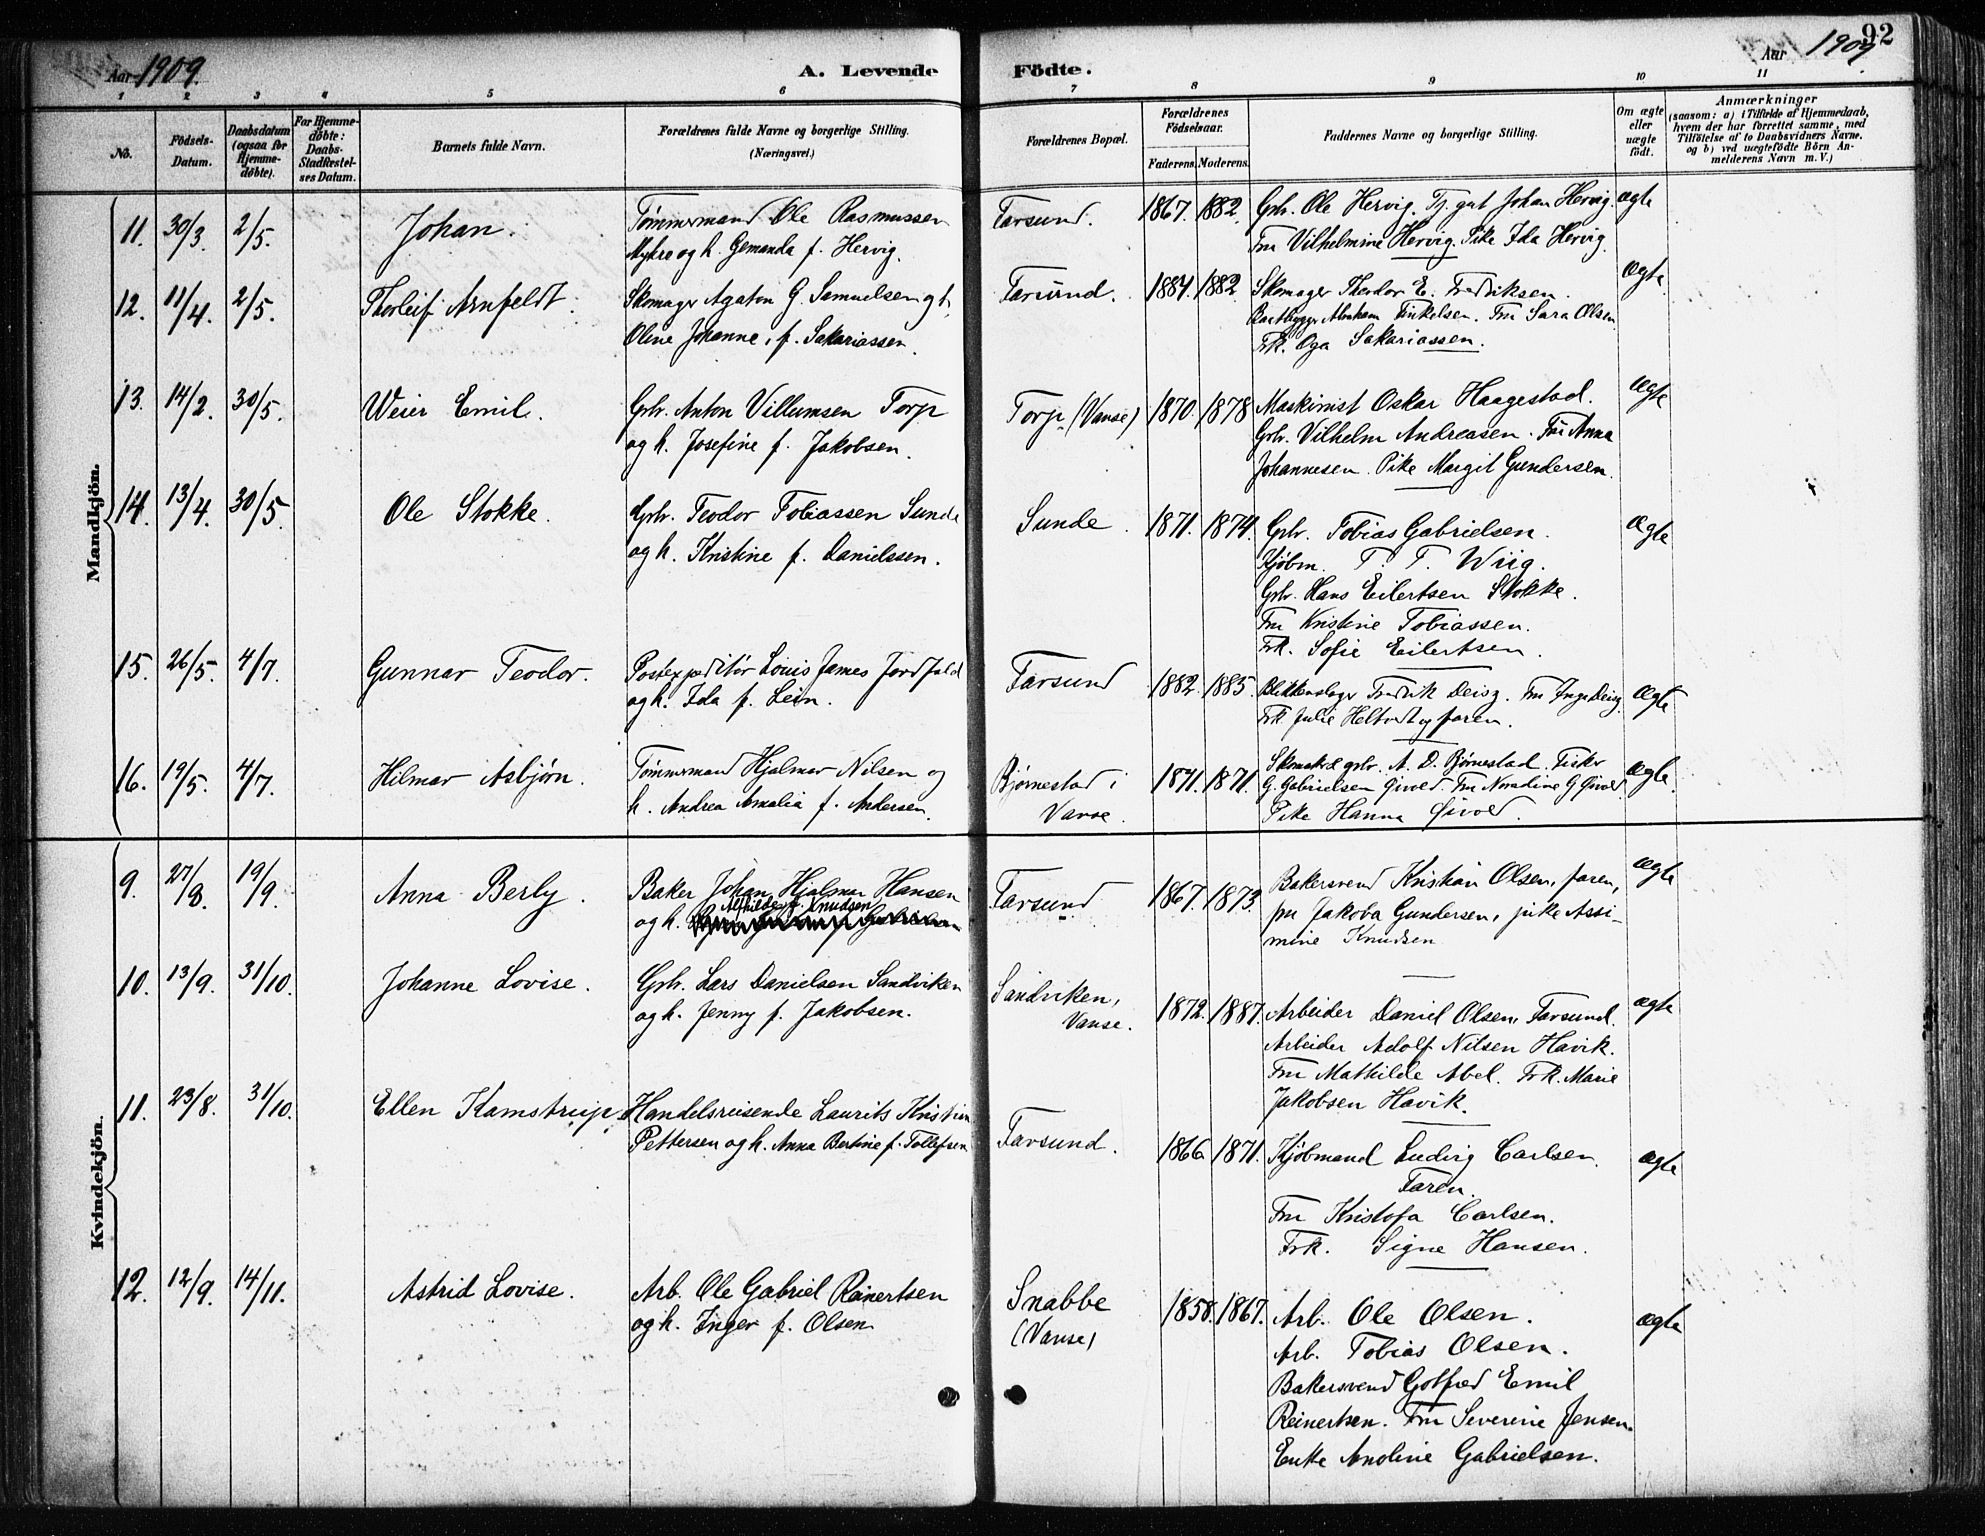 Aar 1909.
A. Levende Födte.
Aar 1909
92
1 2 3 4 5 6 7 8 9 10 11
No.
Födsels-Datum.
Daabsdatum (ogsaa for Hjemme-døbte).
For Hjemme-døbte: Daabs-Stadfæstel-ses Datum.
Barnets fulde Navn.
Forældrenes fulde Navne og borgerlige Stilling.
(Næringsvei.)
Forældrenes Bopæl.
Forældrenes Födselsaar.
Faderens. Moderens.
Faddernes Navne og borgerlige Stilling.
Om ægte eller uægte födt.
Anmærkninger
(saasom: a) i Tilfælde af Hjemmedaab, hvem der har forrettet samme, med Tilföielse af to Daabsvidners Navne. og b) ved uægtefödte Börn An-melderens Navn m. V.)
Mandkjön.
11. 30/3. 2/5. Johan.
Tømmermand Ole Rasmussen
Myhre og h. Gemanda f. Hervig.
Farsund. 1867. 1882.
Grb. Ole Hervig. Tj. gut Johan Hervig.
Fru Vilhelmine Hervig. Pike Ida Hervig.
ægte
12. 11/4. 2/5. Thorleif Arnfeldt.
Skomager Agaton G. Samuelsen og h.
Oline Johanne, f. Sakariassen.
Farsund. 1884. 1882
Skomager Theodor E. Fredriksen.
Baatbygger Abraham Finkelsen. Fru Sara Olsen
Frk. Olga Sakariassen.
Ægte
13. 14/2. 30/5. Weier Emil.
Grb. Anton Villumsen Torp
og h. Josefine f. Jakobsen.
Torp (Vanse) 1870. 1878
Maskinist Oskar Haagestad.
Grb. Vilhelm Andreasen. Fru Anna
Johannesen. Pike Margit Gundersen.
Ægte
14. 13/4. 30/5. Ole Stokke.
Grb. Teodor Tobiassen Sunde
og h. Kristine f. Danielssen.
Sunde. 1871. 1874.
Grb. Tobias Gabrielsen.
Kjøbm. T. T. Wiig.
Grb. Hans Eilertsen Stokke.
Fru Kristine Tobiassen.
Frk. Sofie Eilertsen.
Ægte
15. 26/5. 4/7. Gunnar Teodor.
Postexpeditør Louis James Jordfald
og h. Ida f. Lein.
Farsund 1882. 1885.
Blikkenslager Fredrik Deisz. Fru Inga Deisz
Frk. Julie Heltvedt og faren.
Ægte
16. 19/5. 4/7. Hilmar Asbjørn.
Tømmermand Hjalmar Nilsen og
h. Andrea Amalia f. Andersen.
Bjørnestad i
Vanse.
1871. 1871.
grb. A. D. Bjørnestad. Fisker
G. Gabrielsen Givold. Fru Noradine G Givold
Pike Hanna Givold.
Ægte.
Kvindekjön.
9. 27/8. 19/9. Anna Berly.
Baker Johan Hjalmar Hansen
Alfhilde f. Knudsen
og h.
Farsund 1867. 1873.
Bakersvend Kristian Olsen, faren,
fru Jakoba Gundersen, pike Assi-
mine Knudsen
Ægte
10. 13/9. 31/10. Johanne Lovise.
Grb. Lars Danielsen Sandviken
og h. Jenny f. Jakobsen.
Sandviken,
Vanse.
1872. 1887.
Arbeider Daniel Olsen, Farsund.
Arbeider Adolf Nilsen Havik.
Fru Mathilde Abel. Frk. Marie
Jakobsen Havik.
ægte
11. 23/8. 31/10. Ellen Kamstrup.
Handelsreisende Laurits Kristian
Pettersen og h. Anna Bertine f. Tollefsen
Farsund. 1866. 1871.
Kjøbmand Ludvig Carlsen.
Faren.
Fru Kristofa Carlsen.
Frk. Signe Hansen.
ægte
12. 12/9. 14/11. Astrid Lovise.
Arb. Ole Gabriel Reinertsen
og h. Inger f. Olsen.
Snabbe
(Vanse)
1858. 1867.
Arb. Ole Olsen.
Arb. Tobias Olsen.
Bakersvend Gotfred Emil
Reinertsen. Fru Severine Jensen.
Enke Anoline Gabrielsen.
ægte